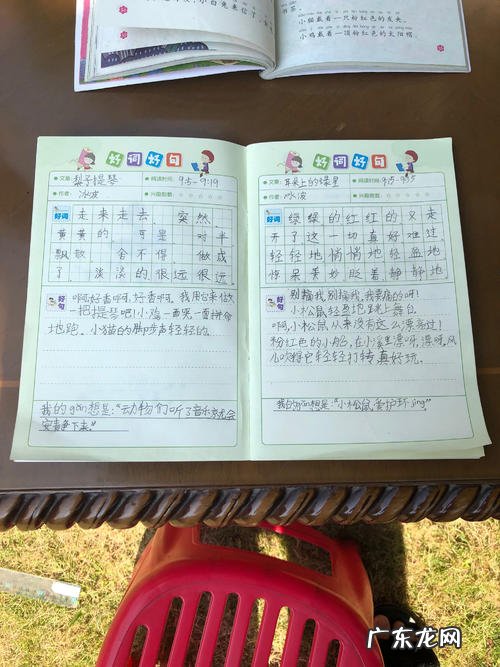 书签。
小猫戴着一只粉红色的发夹。
小鸡戴着一顶粉红色的太阳帽。
好词好句
文章: 梨子提琴
阅读时间: 9:5-9:19
作者: 冰波
兴趣指数:
好词
走来走去 突然
黄黄的 可是 对半
飘歌 舍不得 做成
了 淡淡的很远很远
好句
啊好香呀,好香呀。我用它来做
一把提琴吧!小鸡一面哭一面拼命
地跑。小猫的脚步声轻轻的
我的gǎn想是:“动物们听了音乐就会
安静下来。”
好词好句
文章: 耳朵上的绿星
阅读时间:
作者: 冰波
兴趣指数:
好词
绿绿的红红的又走
开了这一切真好难过
轻轻地悄悄地轻盈地
惊呆黄妙眨着静静地
好句
别摘我别摘我,我要痛的呀!
小松鼠轻盈地跳上舞台。
啊,小松鼠从来没有这么漂亮过!
粉红色的小船,在小溪里漂呀,漂呀,风
小吹得它轻轻打转真好玩。
我的gǎn想是:“小松鼠爱护环jìng”
广东龙网